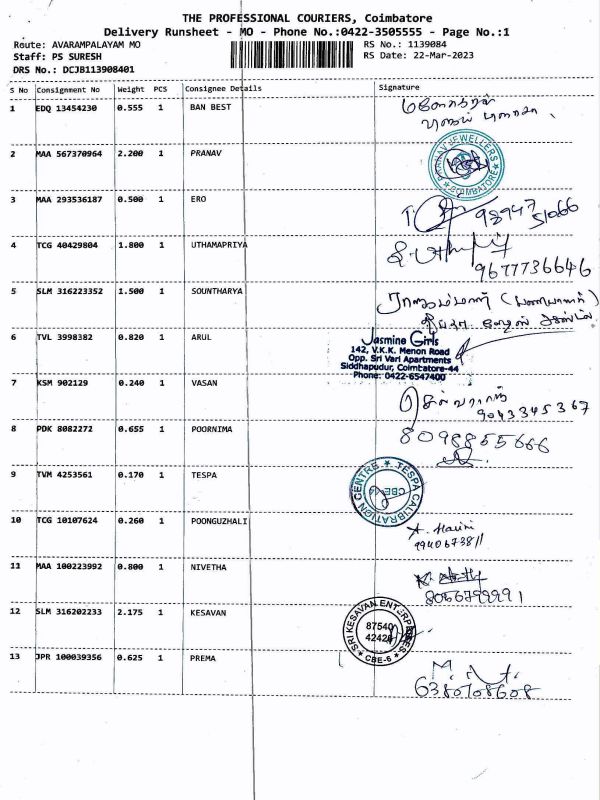 THE PROFESSIONAL COURIERS, Coimbatore
Delivery Runsheet - MO - Phone No.:0422-3505555 - Page No.:1
Route: AVARAMPALAYAM MO
RS No.: 1139084
Staff: PS SURESH
RS Date: 22-Mar-2023
DRS No.: DCJB113908401
S No Consignment No Weight PCS Consignee Details Signature
1 EDQ 13454230 0.555 1 BAN BEST
2 MAA 567370964 2.200 1 PRANAV
PRANAV JEWELLERS
COIMBATORE
3 MAA 293536187 0.500 1 ERO
98947 51066
4 TCG 40429804 1.800 1 UTHAMAPRIYA
9677736646
5 SLM 316223352 1.500 1 SOUNTHARYA
6 TVL 3998382 0.820 1 ARUL
Jasmine Girls
142, V.K.K. Menon Road
Opp. Sri Vari Apartments
Siddhapudur, Coimbatore-44
Phone: 0422-6547400
7 KSM 902129 0.240 1 VASAN
செல்வராஜ்
9043345367
8 PDK 8082272 0.655 1 POORNIMA
8098855666
9 TVM 4253561 0.170 1 TESPA
TESPA CALIBRATION CENTRE
10 TCG 10107624 0.260 1 POONGUZHALI
A. Harini
9940673811
11 MAA 100223992 0.800 1 NIVETHA
8056799991
12 SLM 316202233 2.175 1 KESAVAN
SRI KESAVAN ENTERPRISES
87540
42428
CBE-6
13 JPR 100039356 0.625 1 PREMA
6380708608